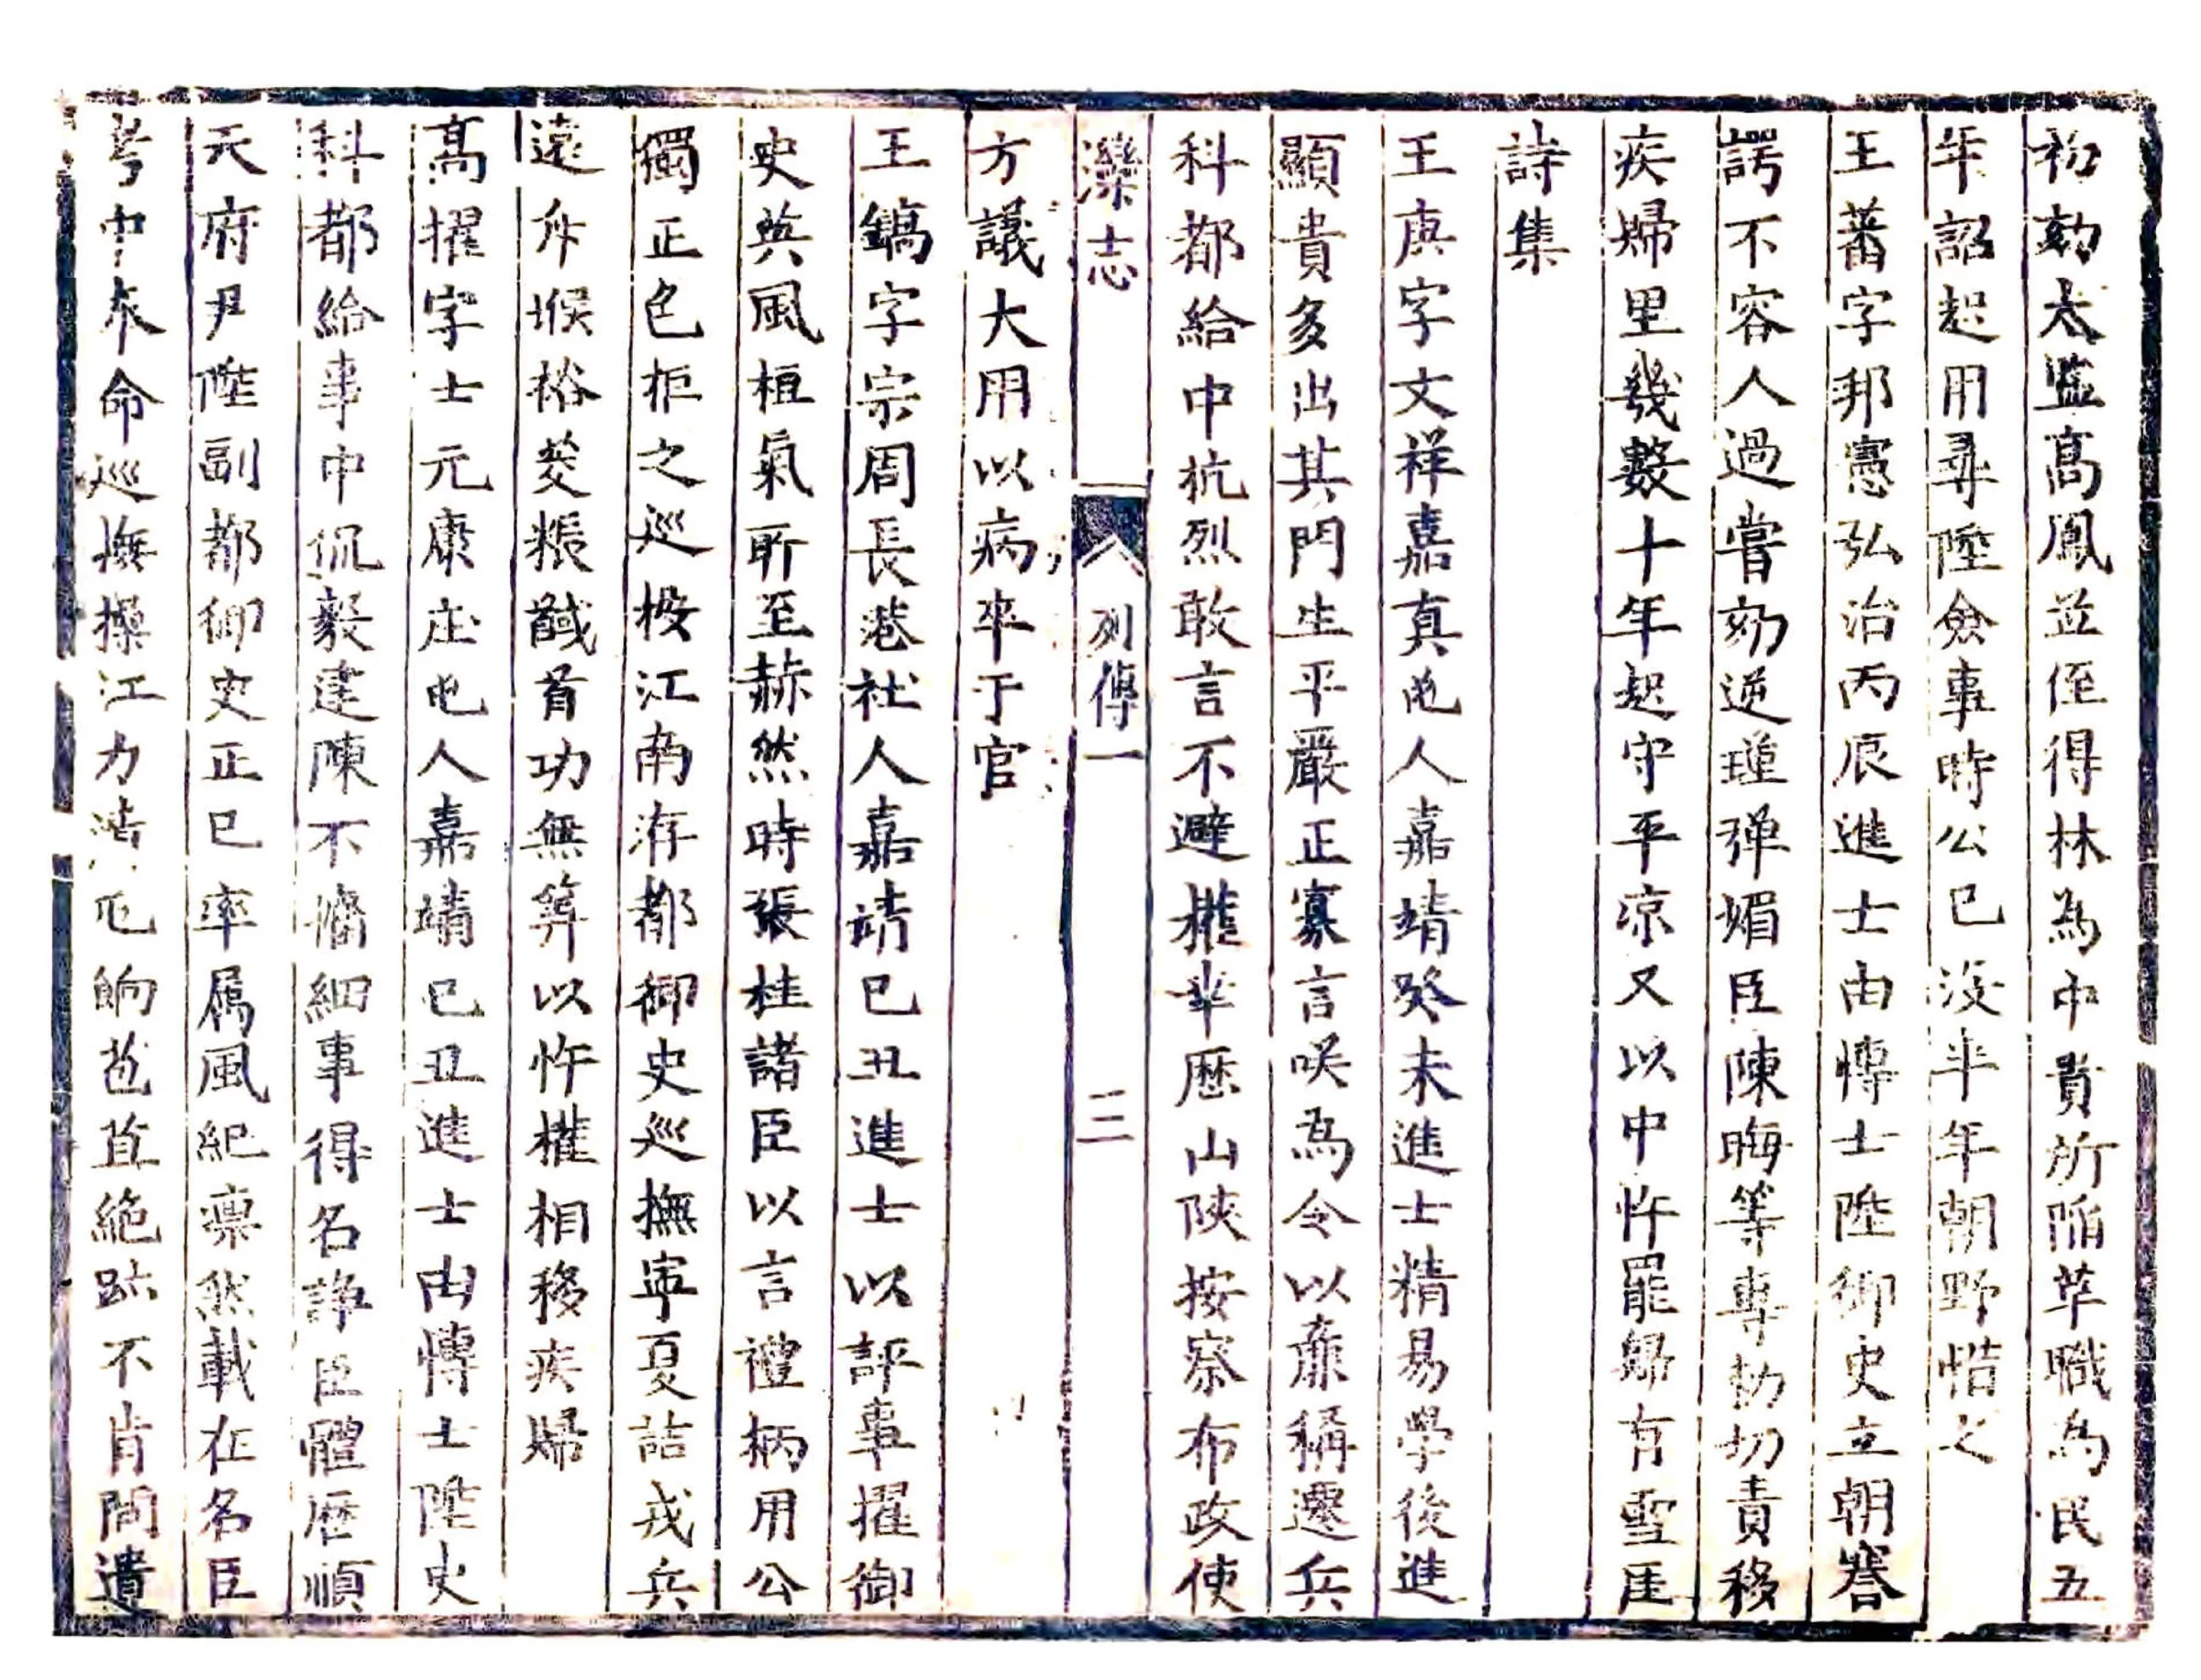 初劾太監高鳳並侄得林為中貴所陷革職為民五
年詔起用尋陞僉事時公已沒半年朝野惜之
王蕃字邦憲弘治丙辰進士由博士陞御史立朝謇
諤不容人過嘗劾逆瑾弹媚臣陳晦等專劾切責移
疾歸里幾數十年起守平凉又以中忤罷歸有雪厓
詩集
王庚字文祥嘉真屯人嘉靖癸未進士精易學後進
顯貴多出其門生平嚴正寡言咲為令以廉稱遷兵
科都給中抗烈敢言不避權倖歷山陝按察布政使
灤志 列傳一 三
方議大用以病卒于官
王鎬字宗周長巷社人嘉靖已丑進士以評事擢御
史英風栢氣所至赫然時張桂諸臣以言禮柄用公
獨正色拒之巡按江南洊都御史巡撫寧夏詰戎兵
遠斥堠裕茭粻馘首功無筭以忤權相移疾歸
高擢字士元康庄屯人嘉靖已丑進士由博士陞史
科都給事中侃毅建陳不脩細事得名諍臣體歷順
天府尹陞副都御史正已率属風紀凛然載在名臣
考中奉命巡撫操江力清屯餉苞苴絶跡不肯問遺